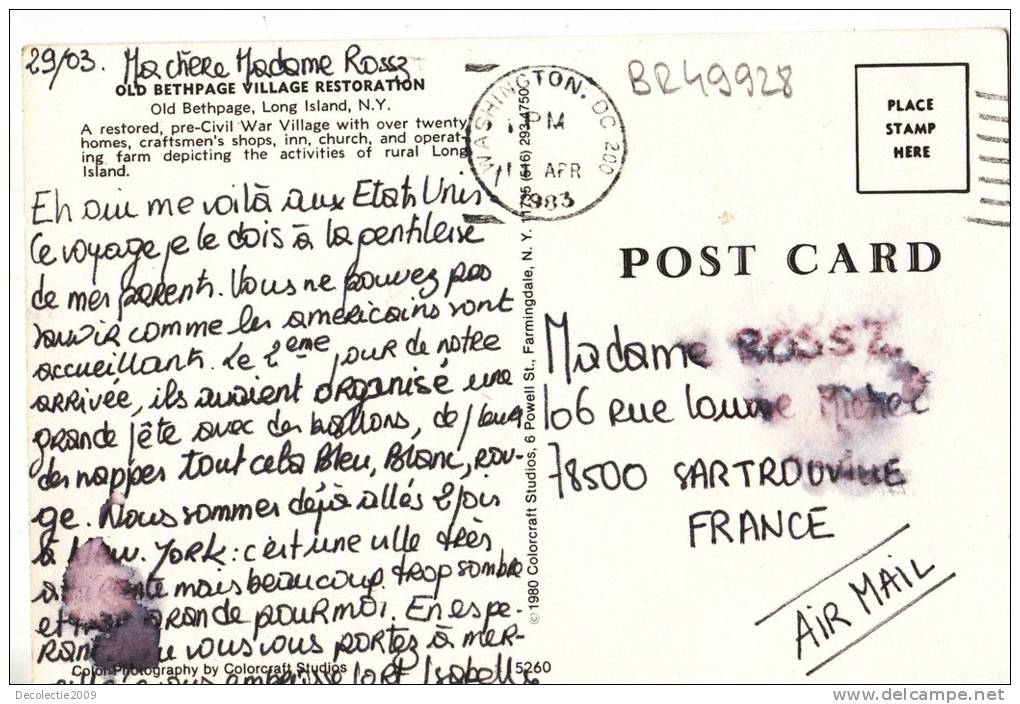 29/03. Ma chère Madame Rossz
OLD BETHPAGE VILLAGE RESTORATION
Old Bethpage, Long Island, N.Y.
A restored, pre-Civil War Village with over twenty
homes, craftsmen's shops, inn, church, and operat-
ing farm depicting the activities of rural Long
Island.
Eh oui me voilà aux Etats Unis
Ce voyage je le dois à la gentillesse
de mes parents. Vous ne pouvez pas
savoir comme les américains sont
accueillants. Le 2ème jour de notre
arrivée, ils avaient organisé une
grande fête avec des ballons, de fleurs
des nappes tout cela Bleu, Blanc, rou-
ge. Nous sommes déjà allés 2 fois
à New. York : c'est une ville très
mais beaucoup trop sombre
et grande pour moi. En espé-
rant que vous vous portez à mer-
vous embrasse fort Isabelle
Color Photography by Colorcraft Studios
5260
© 1980 Colorcraft Studios, 6 Powell St., Farmingdale, N. Y. 11735 (516) 293-4750
WASHINGTON, DC 200
PM
APR
1983
BR49928
PLACE
STAMP
HERE
POST CARD
Madame ROSSZ
106 rue Louise Michel
78500 SARTROUVILLE
FRANCE
AIR MAIL
Decolectie2009
www.delcampe.net